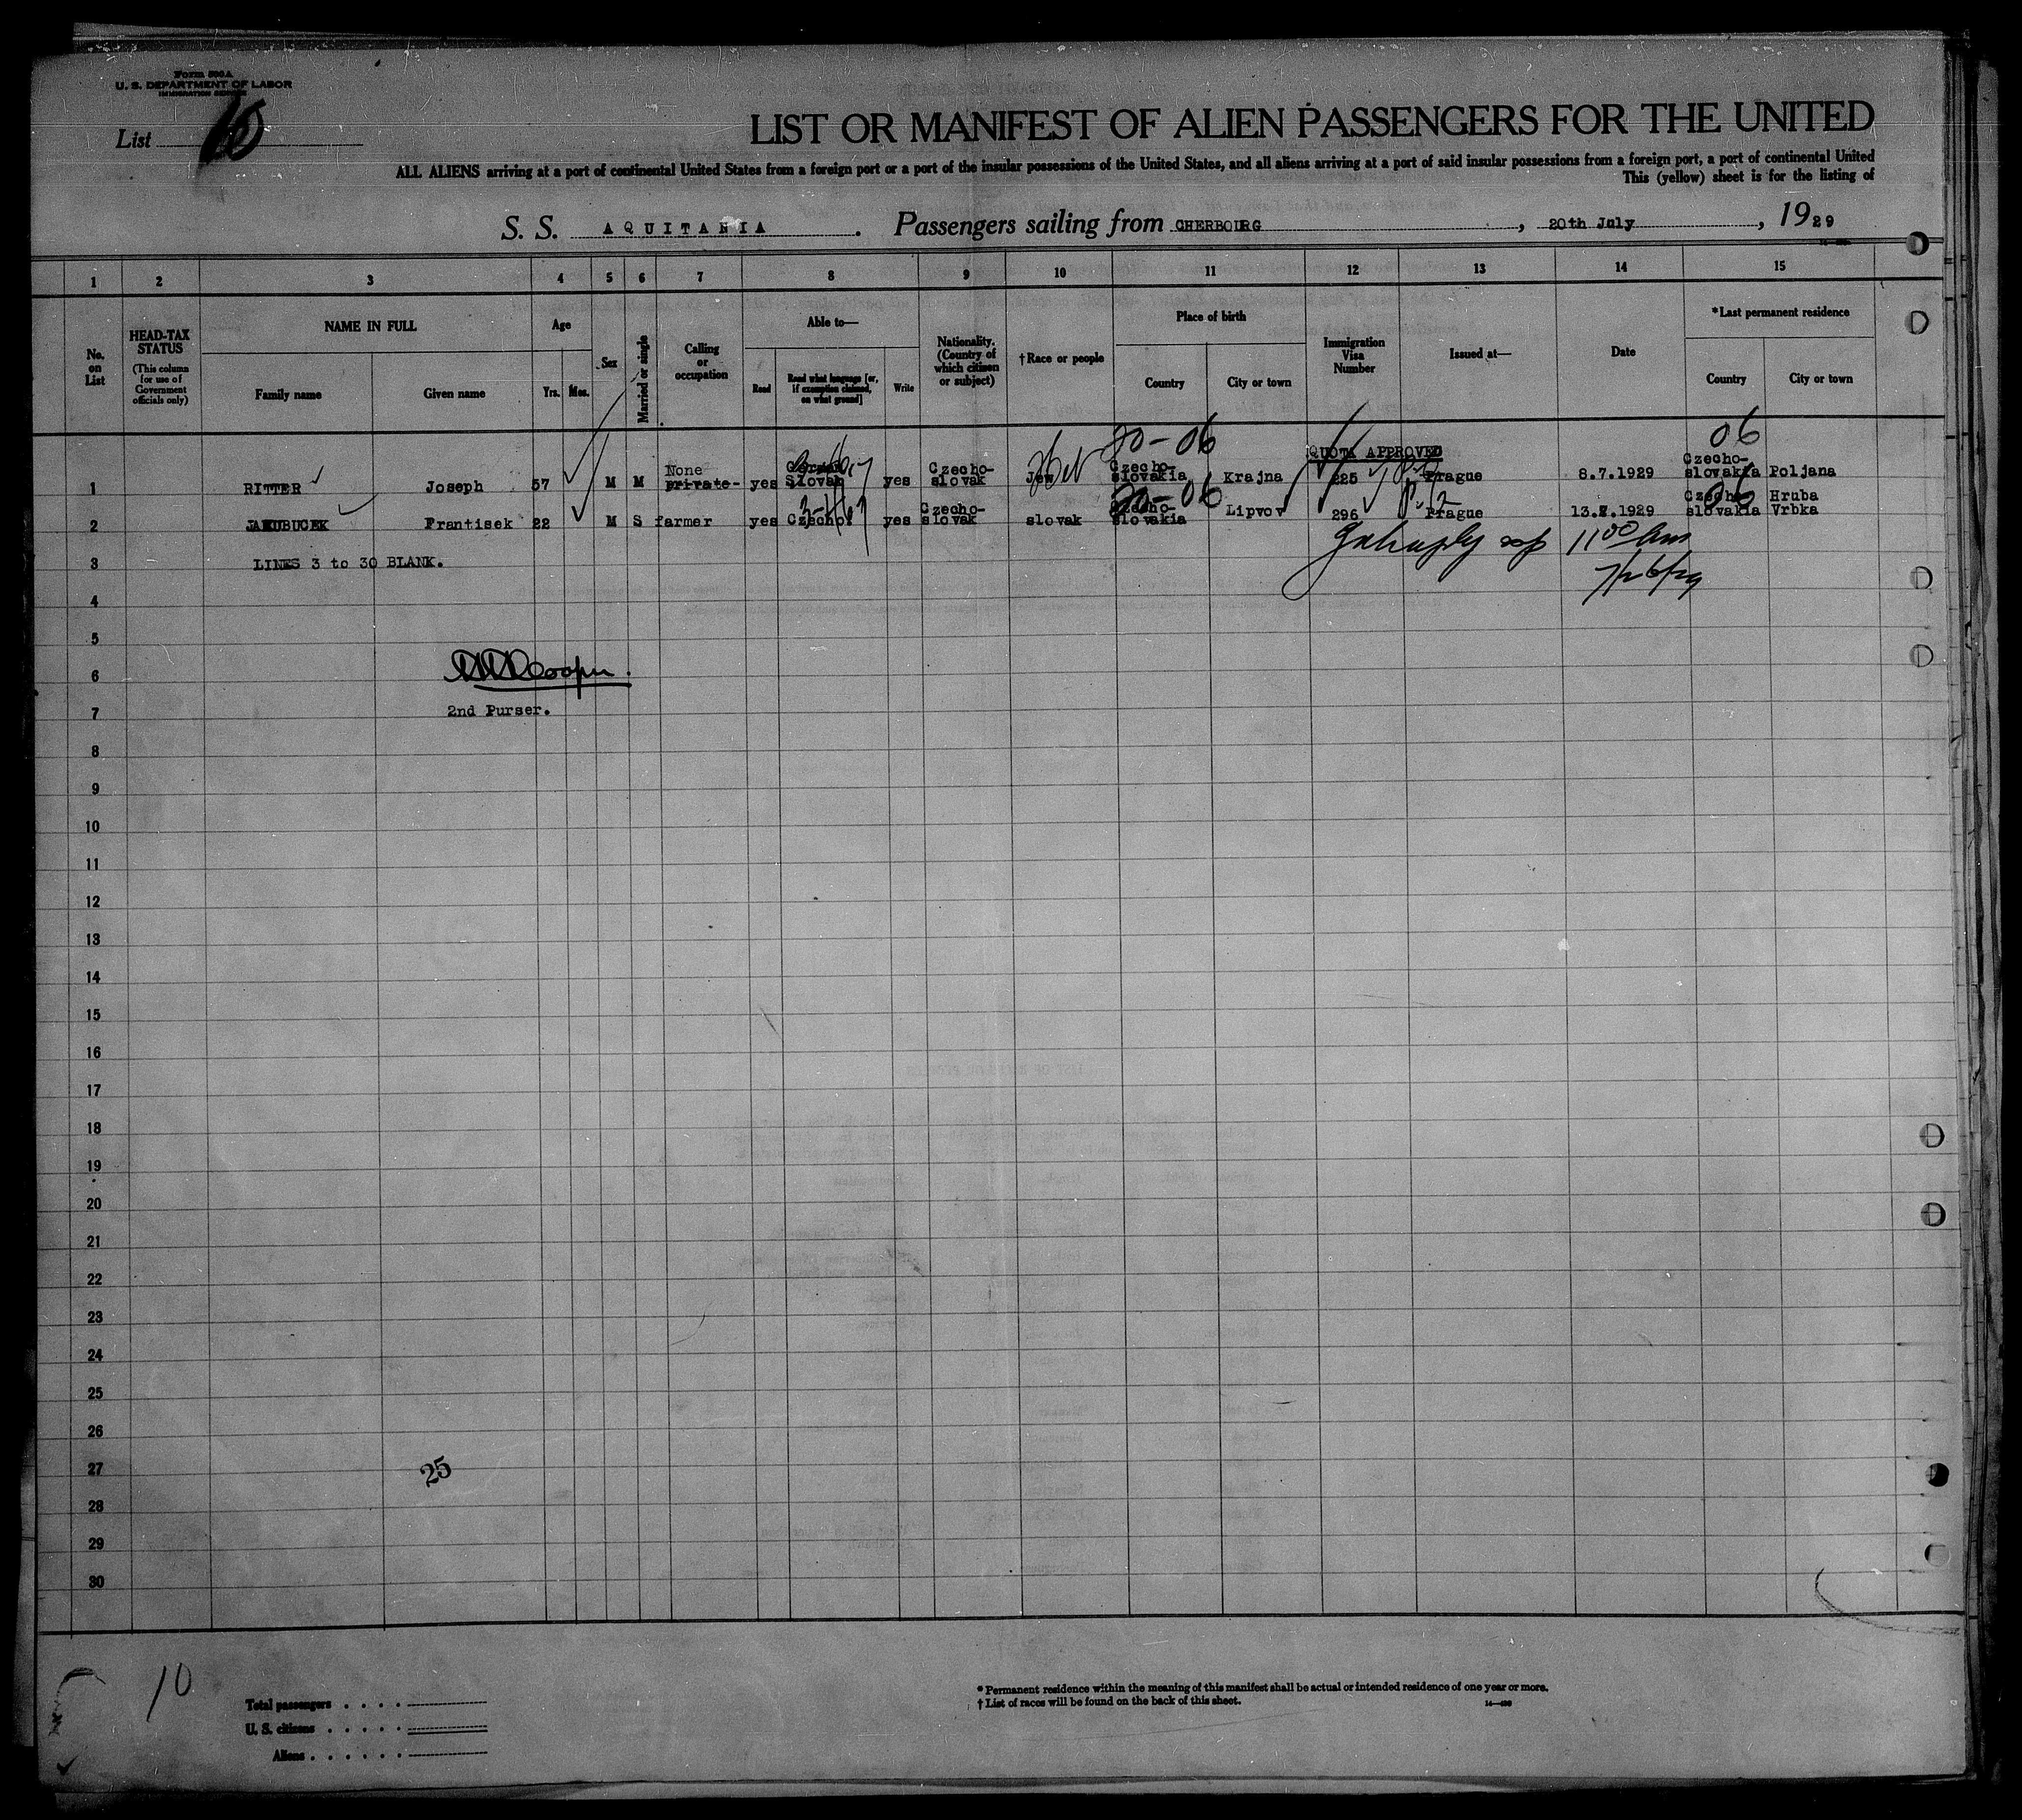 Form 500A
U. S. DEPARTMENT OF LABOR
IMMIGRATION SERVICE
List 10
LIST OR MANIFEST OF ALIEN PASSENGERS FOR THE UNITED
ALL ALIENS arriving at a port of continental United States from a foreign port or a port of the insular possessions of the United States, and all aliens arriving at a port of said insular possessions from a foreign port, a port of continental United
This (yellow) sheet is for the listing of
S. S. AQUITANIA. Passengers sailing from CHERBOURG, 20th July, 1929
1 2 3 4 5 6 7 8 9 10 11 12 13 14 15
No. on List
HEAD-TAX STATUS (This column for use of Government officials only)
NAME IN FULL
Family name Given name
Age
Yrs. Mos.
Sex
Married or single
Calling or occupation
Able to—
Read Read what language [or, if exemption claimed, on what ground] Write
Nationality. (Country of which citizen or subject)
†Race or people
Place of birth
Country City or town
Immigration Visa Number
Issued at—
Date
*Last permanent residence
Country City or town
20-06 QUOTA APPROVED 06
1 RITTER Joseph 57 M M None private- yes German Slovak yes Czecho-slovak Jew Heb Czecho-slovakia Krajna 225 Prague 8.7.1929 Czecho-slovakia Poljana
20-06 06
2 JAKUBUCEK Frantisek 22 M S farmer yes Czecho. yes Czecho-slovak slovak Czecho-slovakia Lipvov 296 Prague 13.7.1929 Czecho-slovakia Hruba Vrbka
1100
3 LINES 3 to 30 BLANK.
7/26/29
4
5
6 Cooper.
7 2nd Purser.
8
9
10
11
12
13
14
15
16
17
18
19
20
21
22
23
24
25
26
27 25
28
29
30
10
Total passengers . . . .
U. S. citizens . . . . .
Aliens . . . . . .
* Permanent residence within the meaning of this manifest shall be actual or intended residence of one year or more.
† List of races will be found on the back of this sheet.